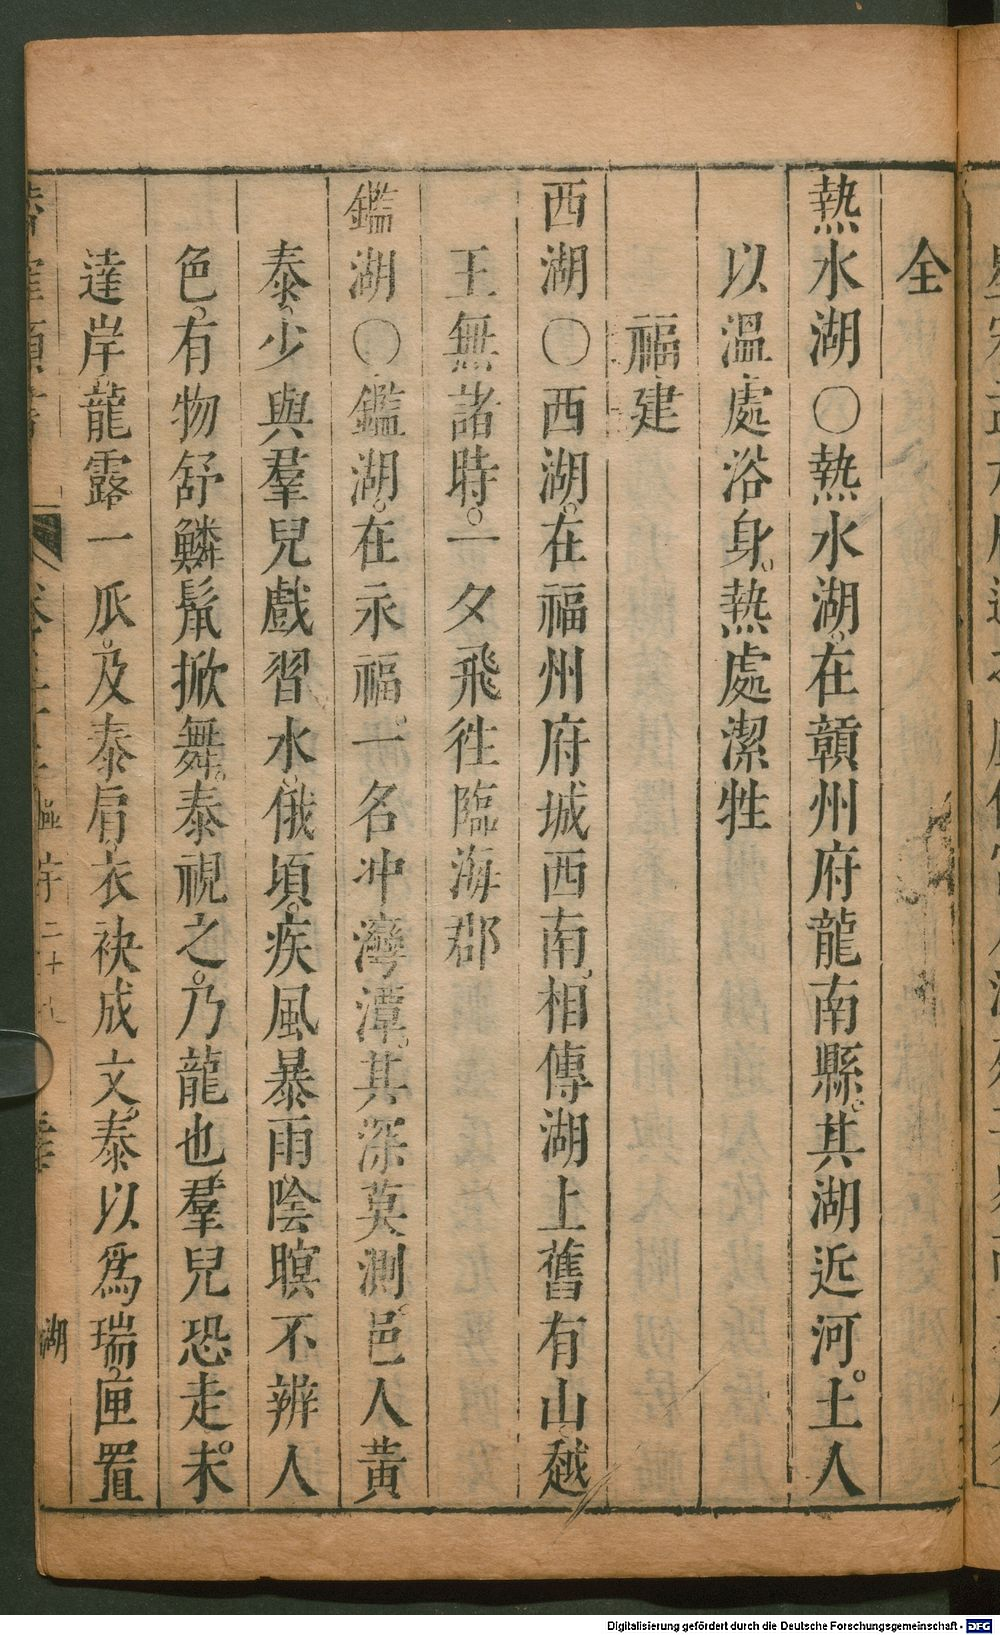 仝
熱水湖○熱水湖。在贛州府龍南縣。其湖近河。土人
以溫處浴身。熱處潔牲
福建
西湖○西湖。在福州府城西南。相傳湖上舊有山越
王無諸時。一夕飛徃臨海郡
鑑湖○鑑湖。在永福。一名冲灣潭。其深莫測。邑人黃
泰。少與羣兒戲習水。俄頃。疾風暴雨。陰暝不辨人
色。有物舒鱗鬣掀舞。泰視之。乃龍也。羣兒恐走。未
達岸。龍露一爪。及泰肩。衣袂成文。泰以爲瑞。匣置
湖
Digitalisierung gefördert durch die Deutsche Forschungsgemeinschaft - DFG